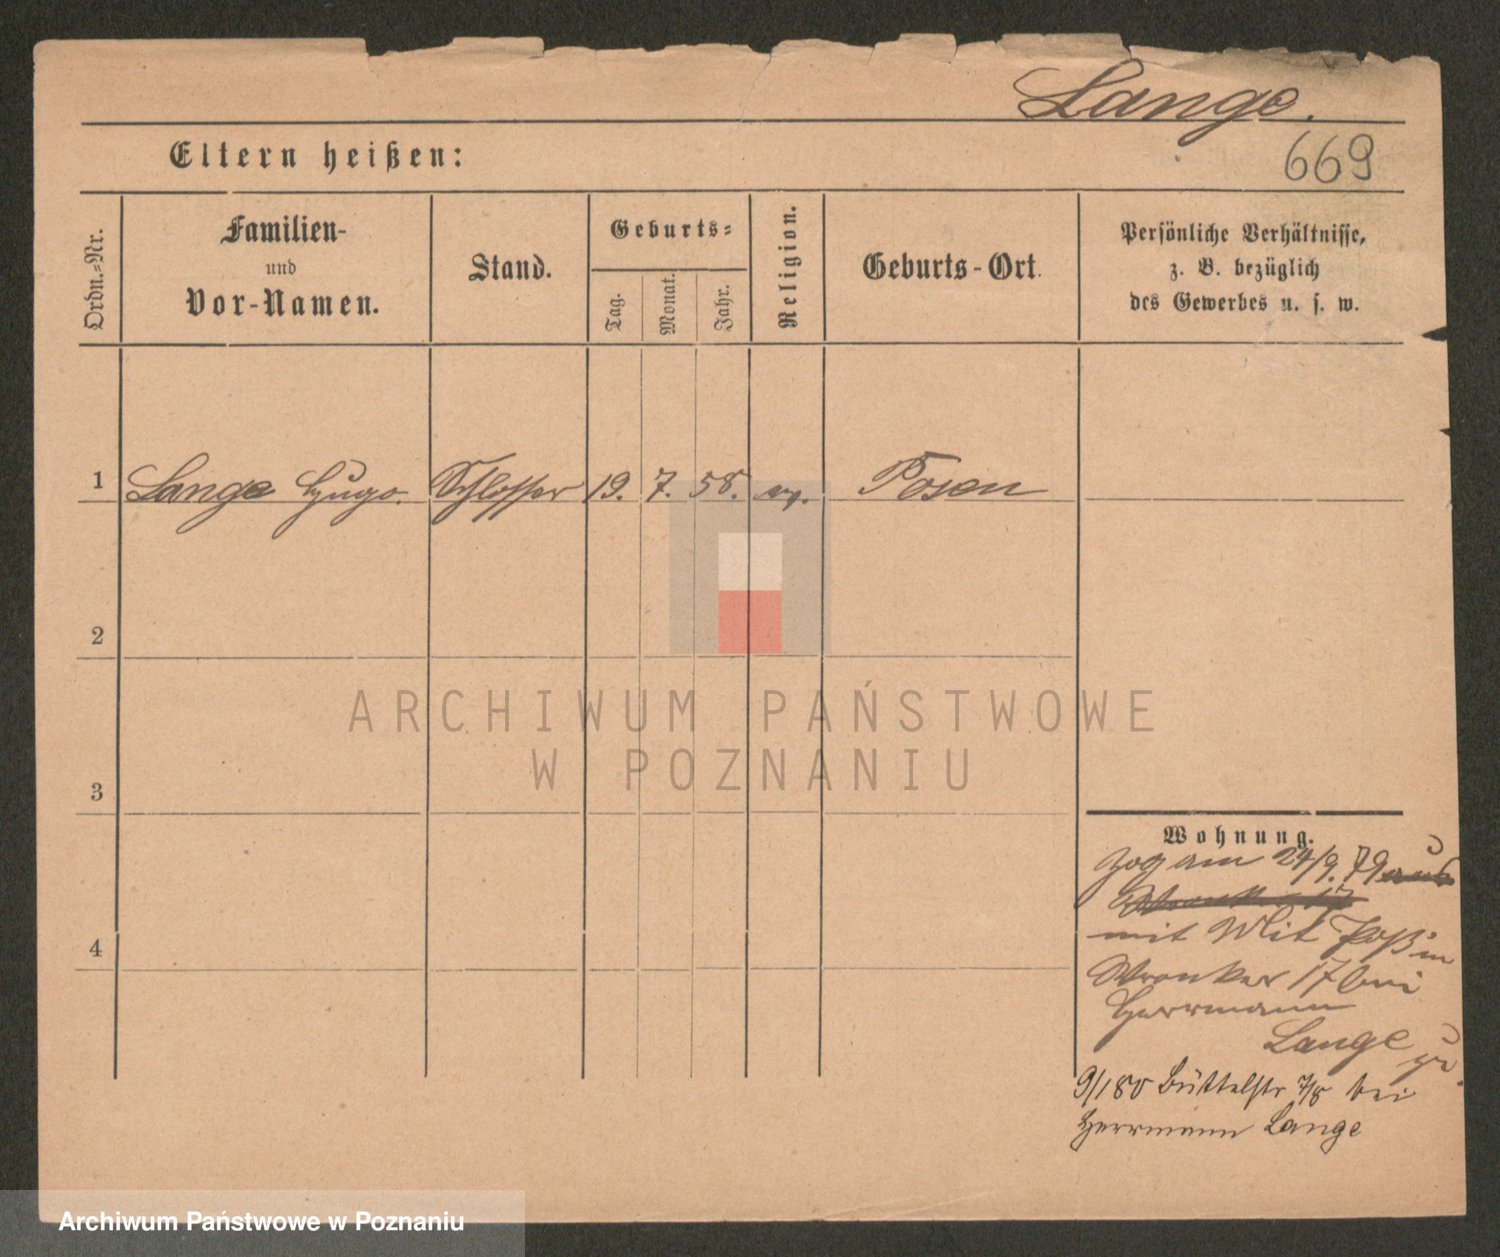 Lange.
669
Eltern heißen:
Ordn.-Nr.
Familien-
und
Vor-Namen.
Stand.
Geburts-
Tag.
Monat.
Jahr.
Religion.
Geburts-Ort.
Persönliche Verhältnisse,
z. B. bezüglich
des Gewerbes u. s. w.
1 Lange Hugo. Schlosser 19. 7. 58. ev. Posen
2
3
4
Wohnung.
zog am 24/9. 79 aus
mit
Wronker 17 bei
Herrmann
Lange zu.
9/1 80 Büttelstr 7/8 bei
Herrmann Lange
ARCHIWUM PAŃSTWOWE
W POZNANIU
Archiwum Państwowe w Poznaniu